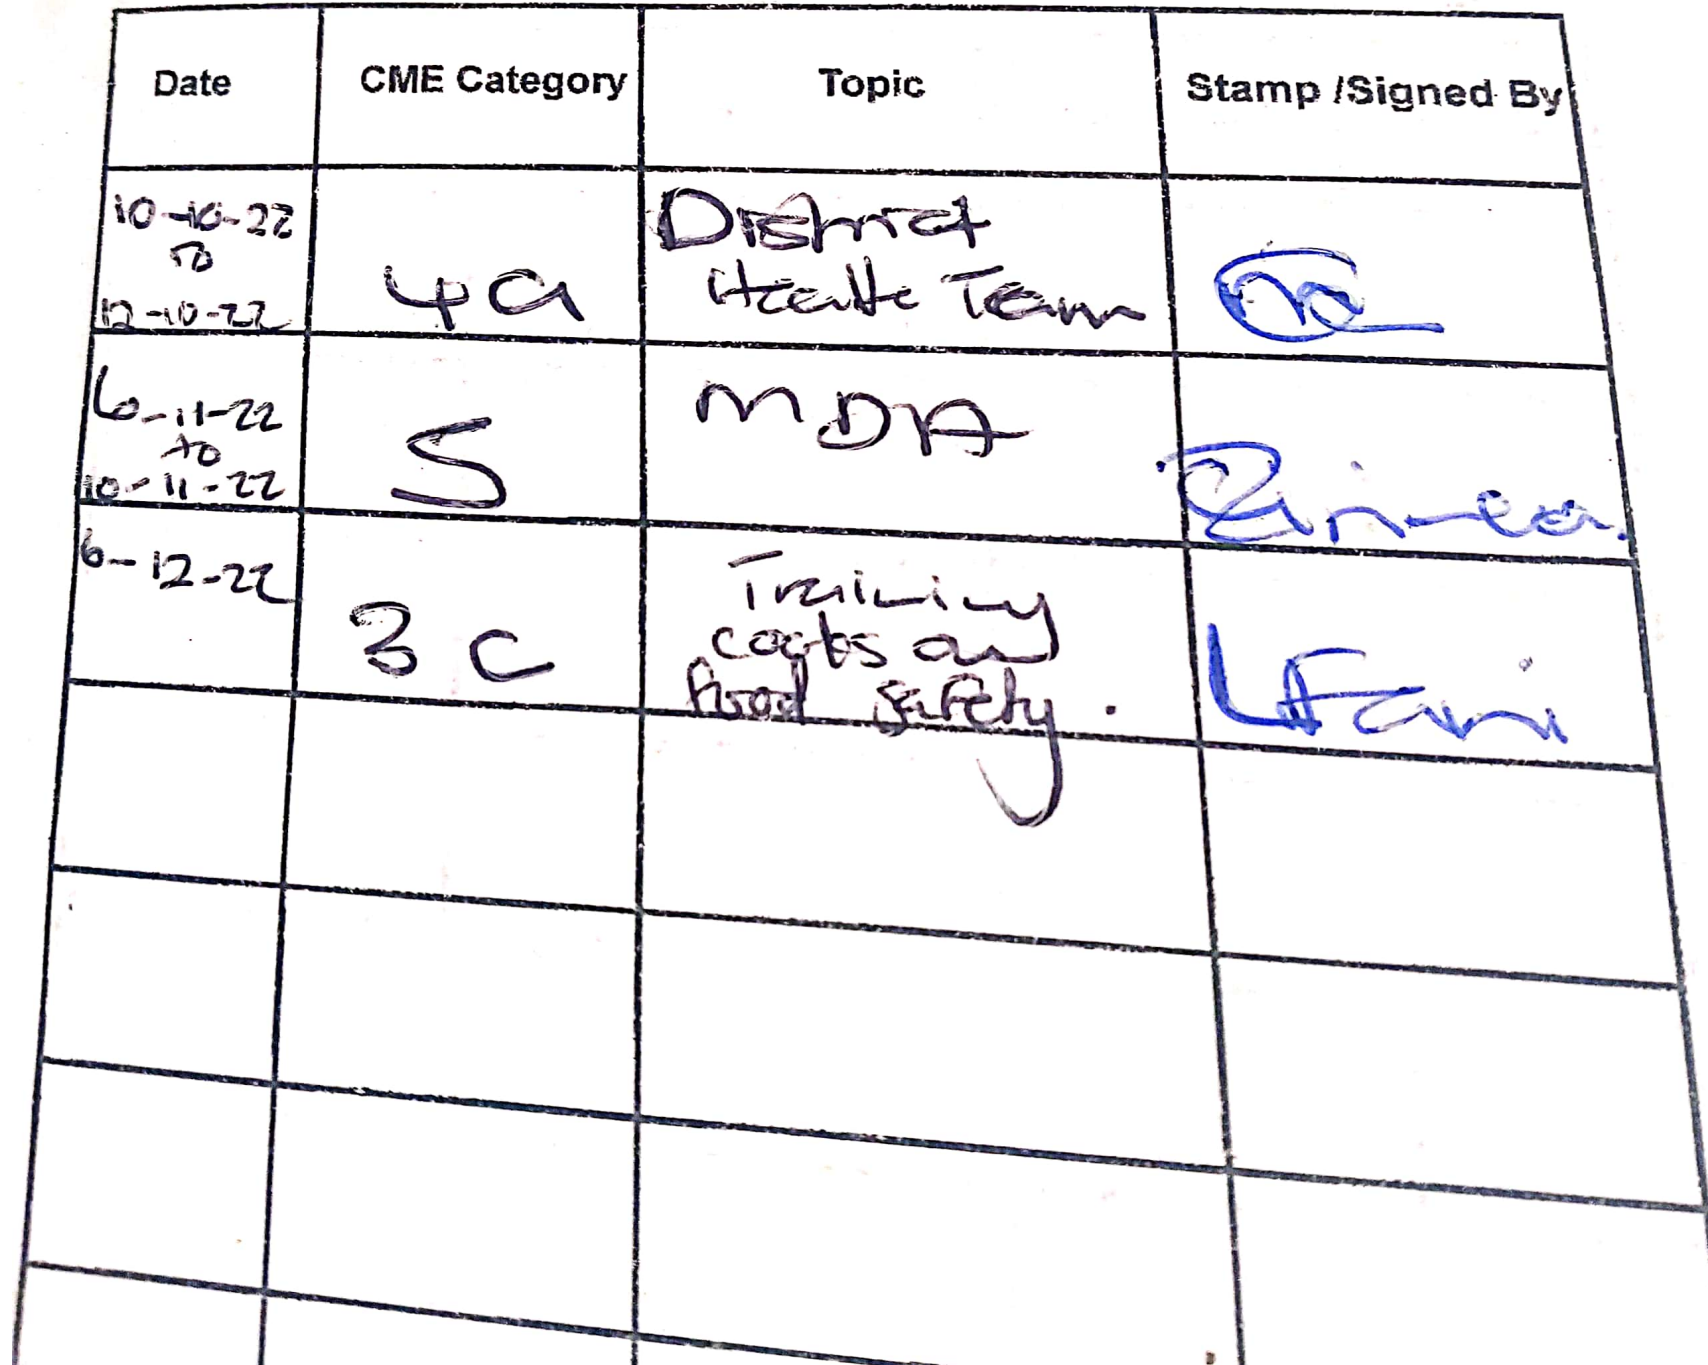 Date CME Category Topic Stamp /Signed By
10-10-22
to
12-10-22
4a
District
Health Team
6-11-22
to
10-11-22
5
MDA
6-12-22
3 C
Training
cooks on
food safety.
LFani